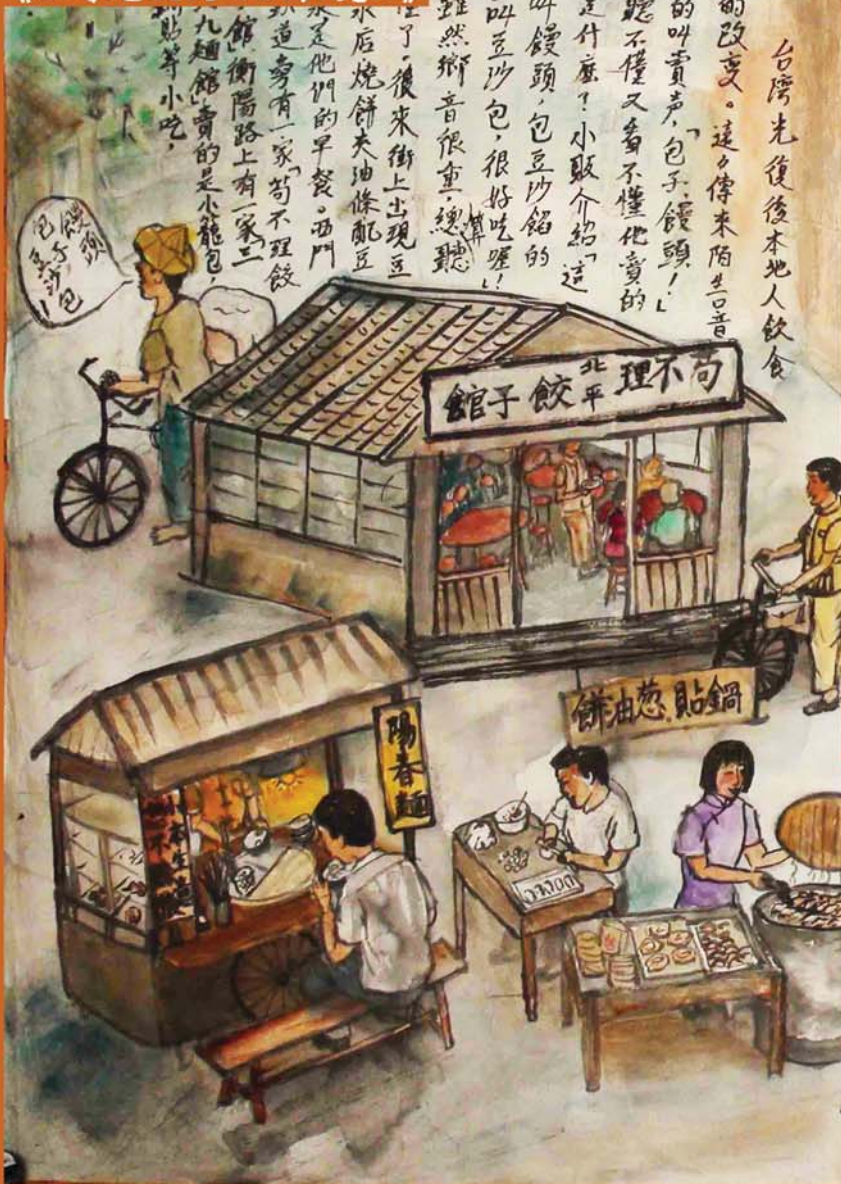 台灣光復後本地人飲食
的改变。遠々傳來陌生口音
的叫賣声,「包子、饅頭!」
聽不懂又看不懂他賣的
是什麼?小販介紹「這
叫饅頭,包豆沙餡的
叫豆沙包,很好吃喔!」
雖然鄉音很重,總算聽
懂了。後來街上出現豆
漿后燒餅夾油條配豆
漿是他們的早餐。西門
道旁有一家「苟不理餃
館」衡陽路上有一家「三
六九麵館」賣的是小籠包,
鍋貼等小吃,
饅頭
包子
豆沙包!
苟不理北平餃子館
鍋貼.葱油餅
陽春麵
小本生意